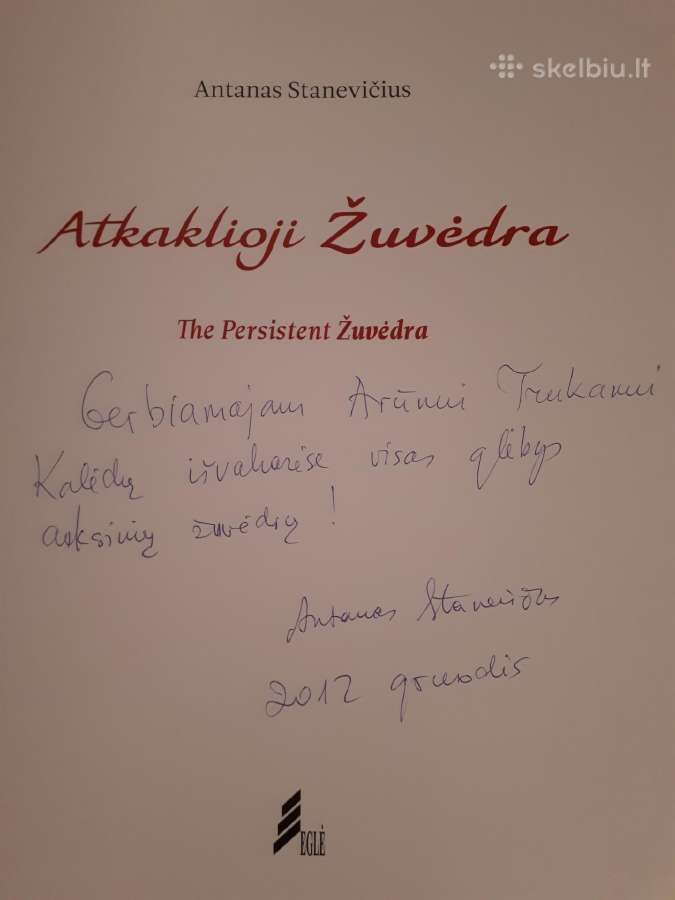 skelbiu.lt
Antanas Stanevičius
Atkaklioji Žuvėdra
The Persistent Žuvėdra
Gerbiamajam Arūnui Trukanui
Kalėdų išvakarėse visas glėbys
auksinių žuvėdrų!
Antanas Stanevičius
2012 gruodis
EGLĖ